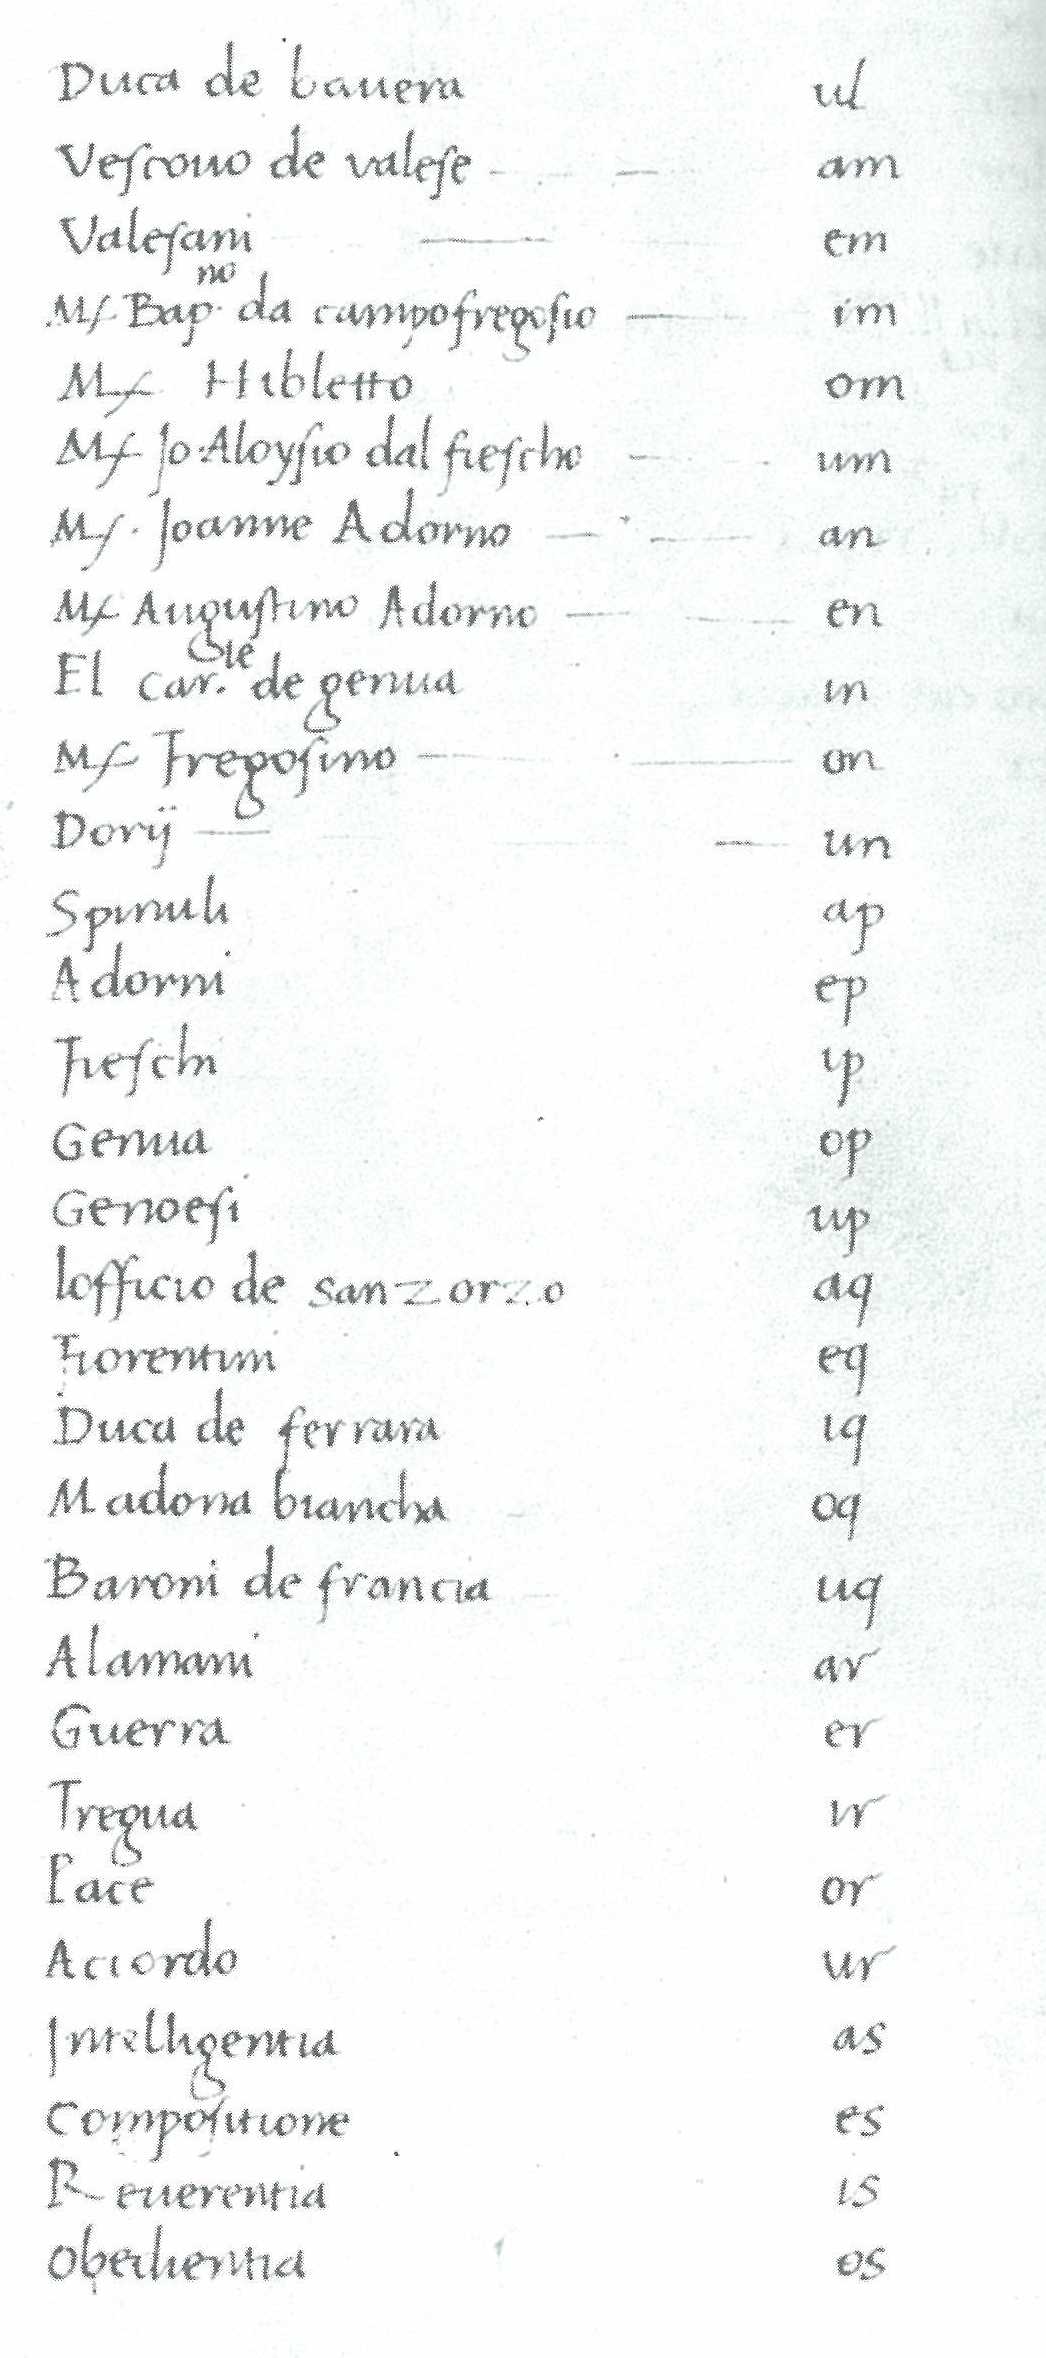 Duca de bauera ul
Vescouo de valese am
Valesani em
Mſ Bap.no da campofregosio im
Mſ Hibletto om
Mſ Jo: Aloysio dal fiescho um
Mſ. Joanne Adorno an
Mſ Augustino Adorno en
El Car.le de genua in
Mſ Fregosino on
Dorij un
Spinuli ap
Adorni ep
Fieschi ip
Genua op
Genoesi up
lofficio de sanzorzo aq
Fiorentini eq
Duca de ferrara iq
Madona biancha oq
Baroni de francia uq
Alamani ar
Guerra er
Tregua ir
Pace or
Accordo ur
Intelligentia as
Compositione es
Reuerentia is
Obedientia os